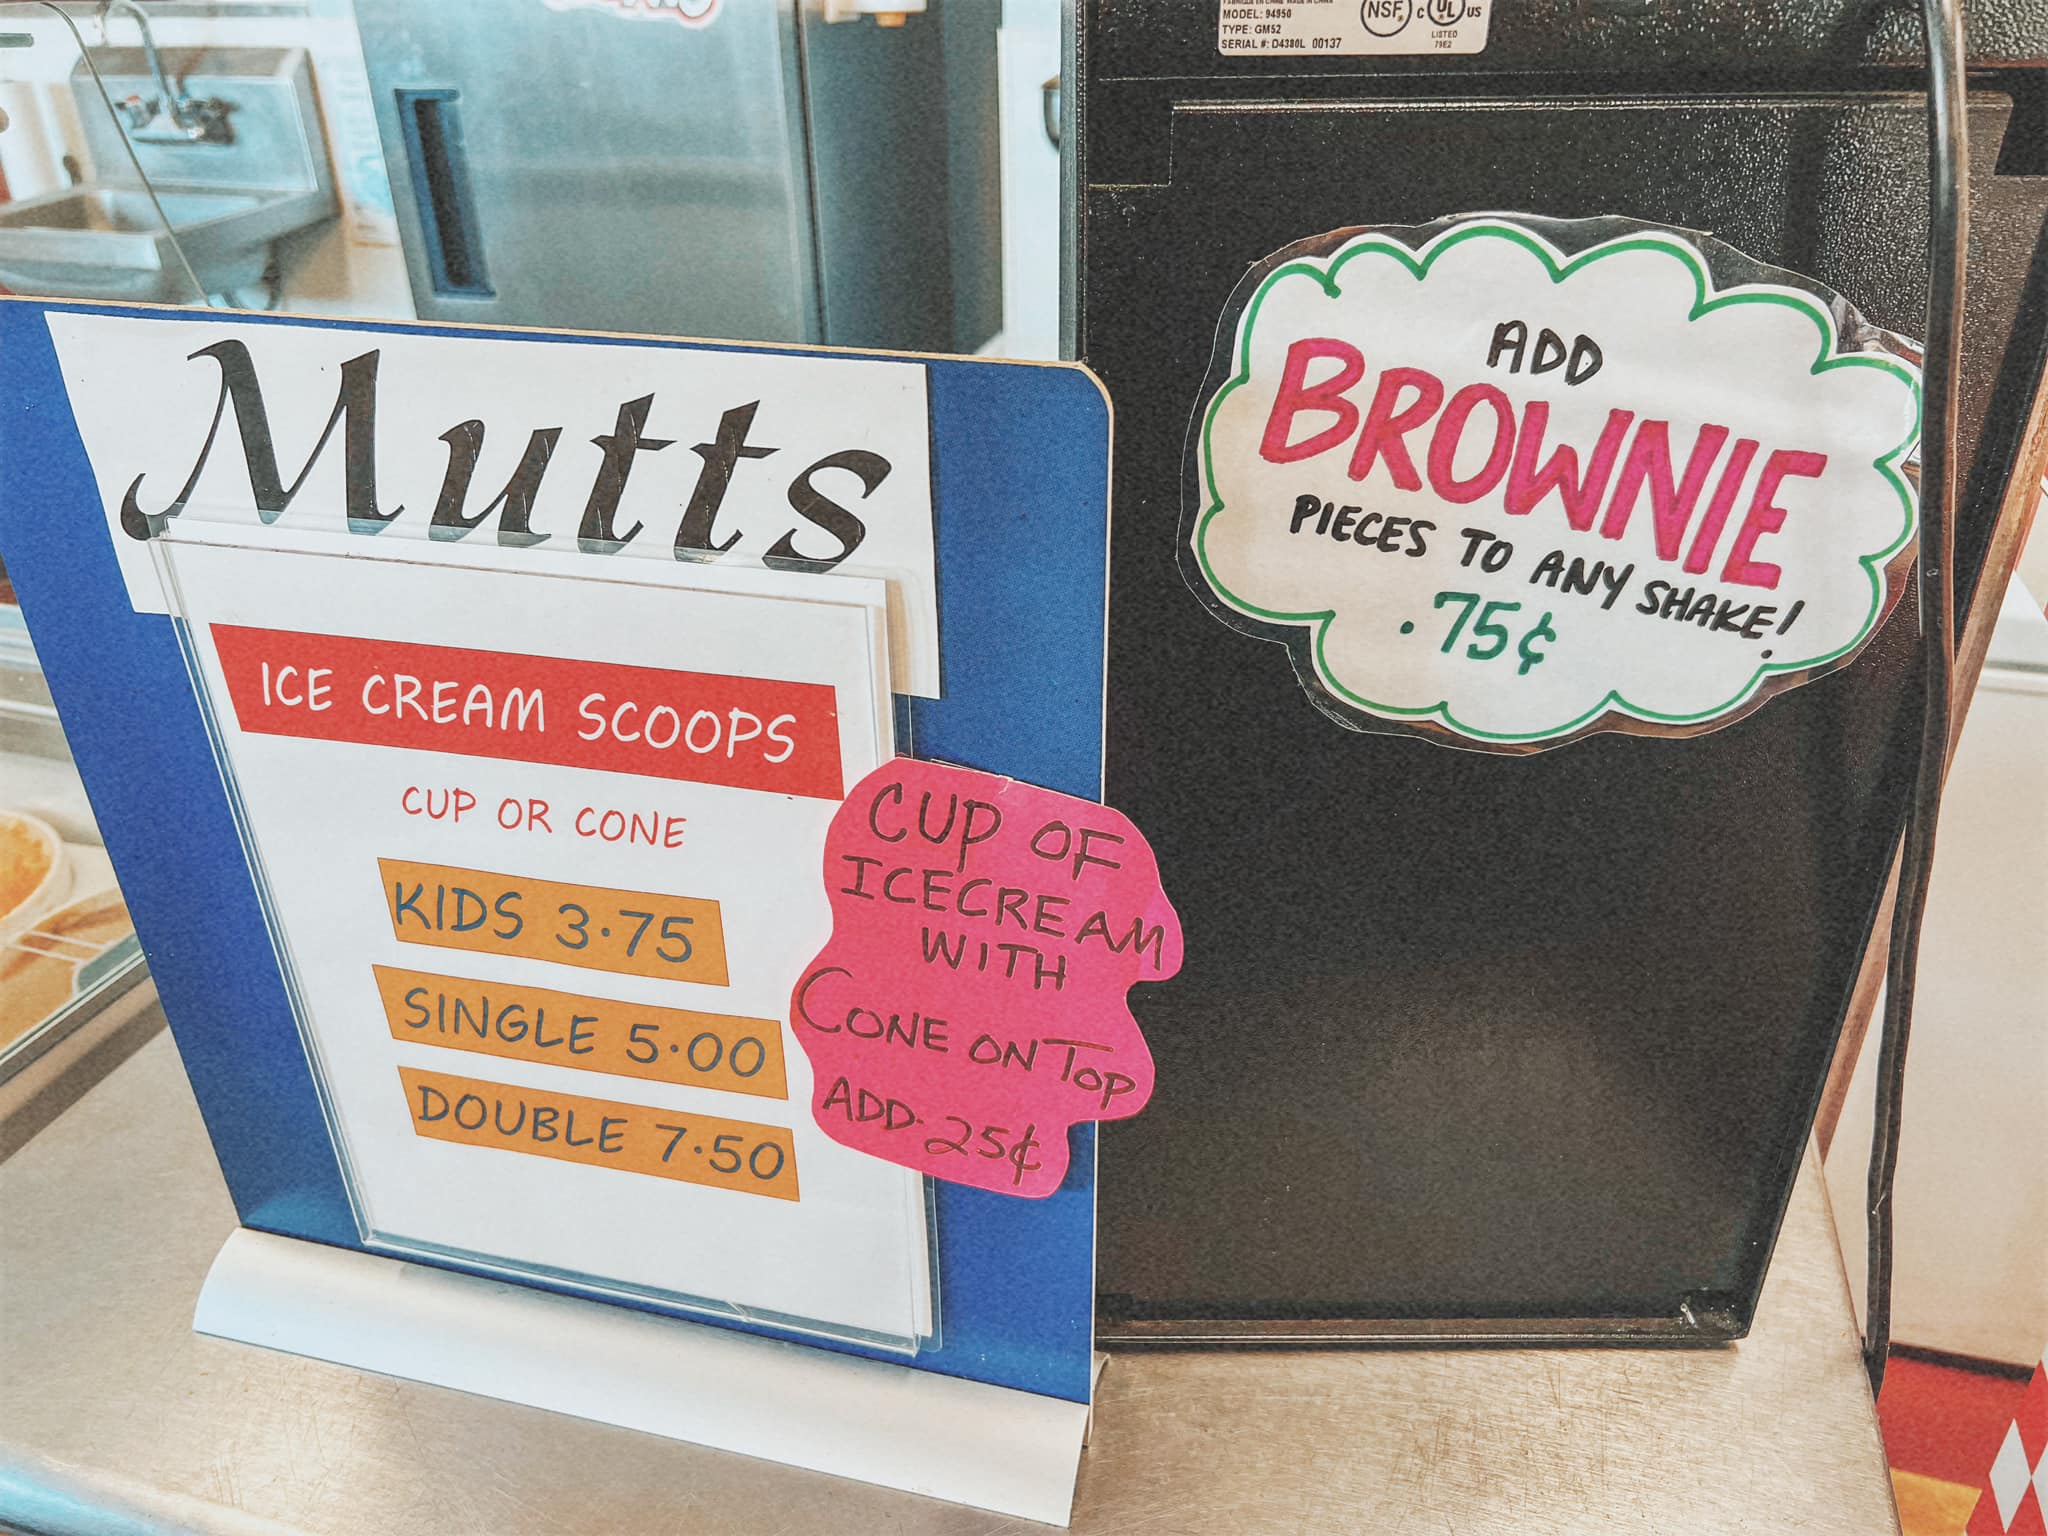 MODEL: 94950
TYPE: GM52
SERIAL #: D4380L 00137
NSF
C UL US
LISTED
79E2
Mutts
ICE CREAM SCOOPS
CUP OR CONE
KIDS 3.75
SINGLE 5.00
DOUBLE 7.50
CUP OF
ICECREAM
WITH
CONE ON TOP
ADD .25¢
ADD
BROWNIE
PIECES TO ANY SHAKE!
.75¢